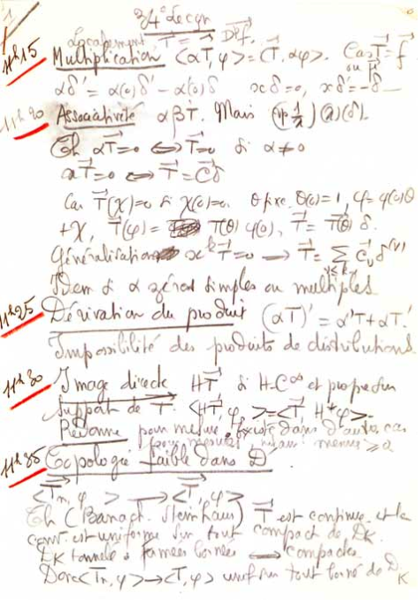 1
34° Leçon
Localement T⃗ = Déf.
11h15 Multiplication <αT⃗,φ>=<T⃗,αφ>. Cas T⃗=f⃗
ou μ⃗
αδ' = α(0)δ' − α'(0)δ xδ=0, xδ'=−δ
11h20 Associativité αβT⃗. Mais (vp 1/x)(x)(δ).
Th αT⃗=0 ⟺ T⃗=0 si α≠0
xT⃗=0 ⟺ T⃗=C⃗δ
Car T⃗(χ)=0 si χ(0)=0. θ pre. θ(0)=1, φ=φ(0)θ
+χ, T⃗(φ)= T⃗(θ)φ(0), T⃗=T⃗(θ)δ.
Généralisation x^k T⃗=0 → T⃗=∑ c⃗_ν δ^(ν)
ν≤k-1
Idem si α zéros simples ou multiples
11h25 Dérivation du produit (αT⃗)'=α'T⃗+αT⃗'.
Impossibilité des produits de distributions
11h30 Image directe HT⃗ si H C∞ et propre sur
support de T⃗. <HT⃗,φ>=<T⃗,H*φ>.
pour mesure H existe dans d'autres cas
pour mesures mesure ≥0
11h35 Topologie faible dans D'
<T⃗n,φ> → <T⃗,φ>
Th (Banach-Steinhaus) T⃗ est continue et la
conv. est uniforme sur tout compact de D_K.
D_K tonnelé à fermées bornées → compactes.
Donc <T⃗n,φ>→<T⃗,φ> unif. sur tout borné de D_K